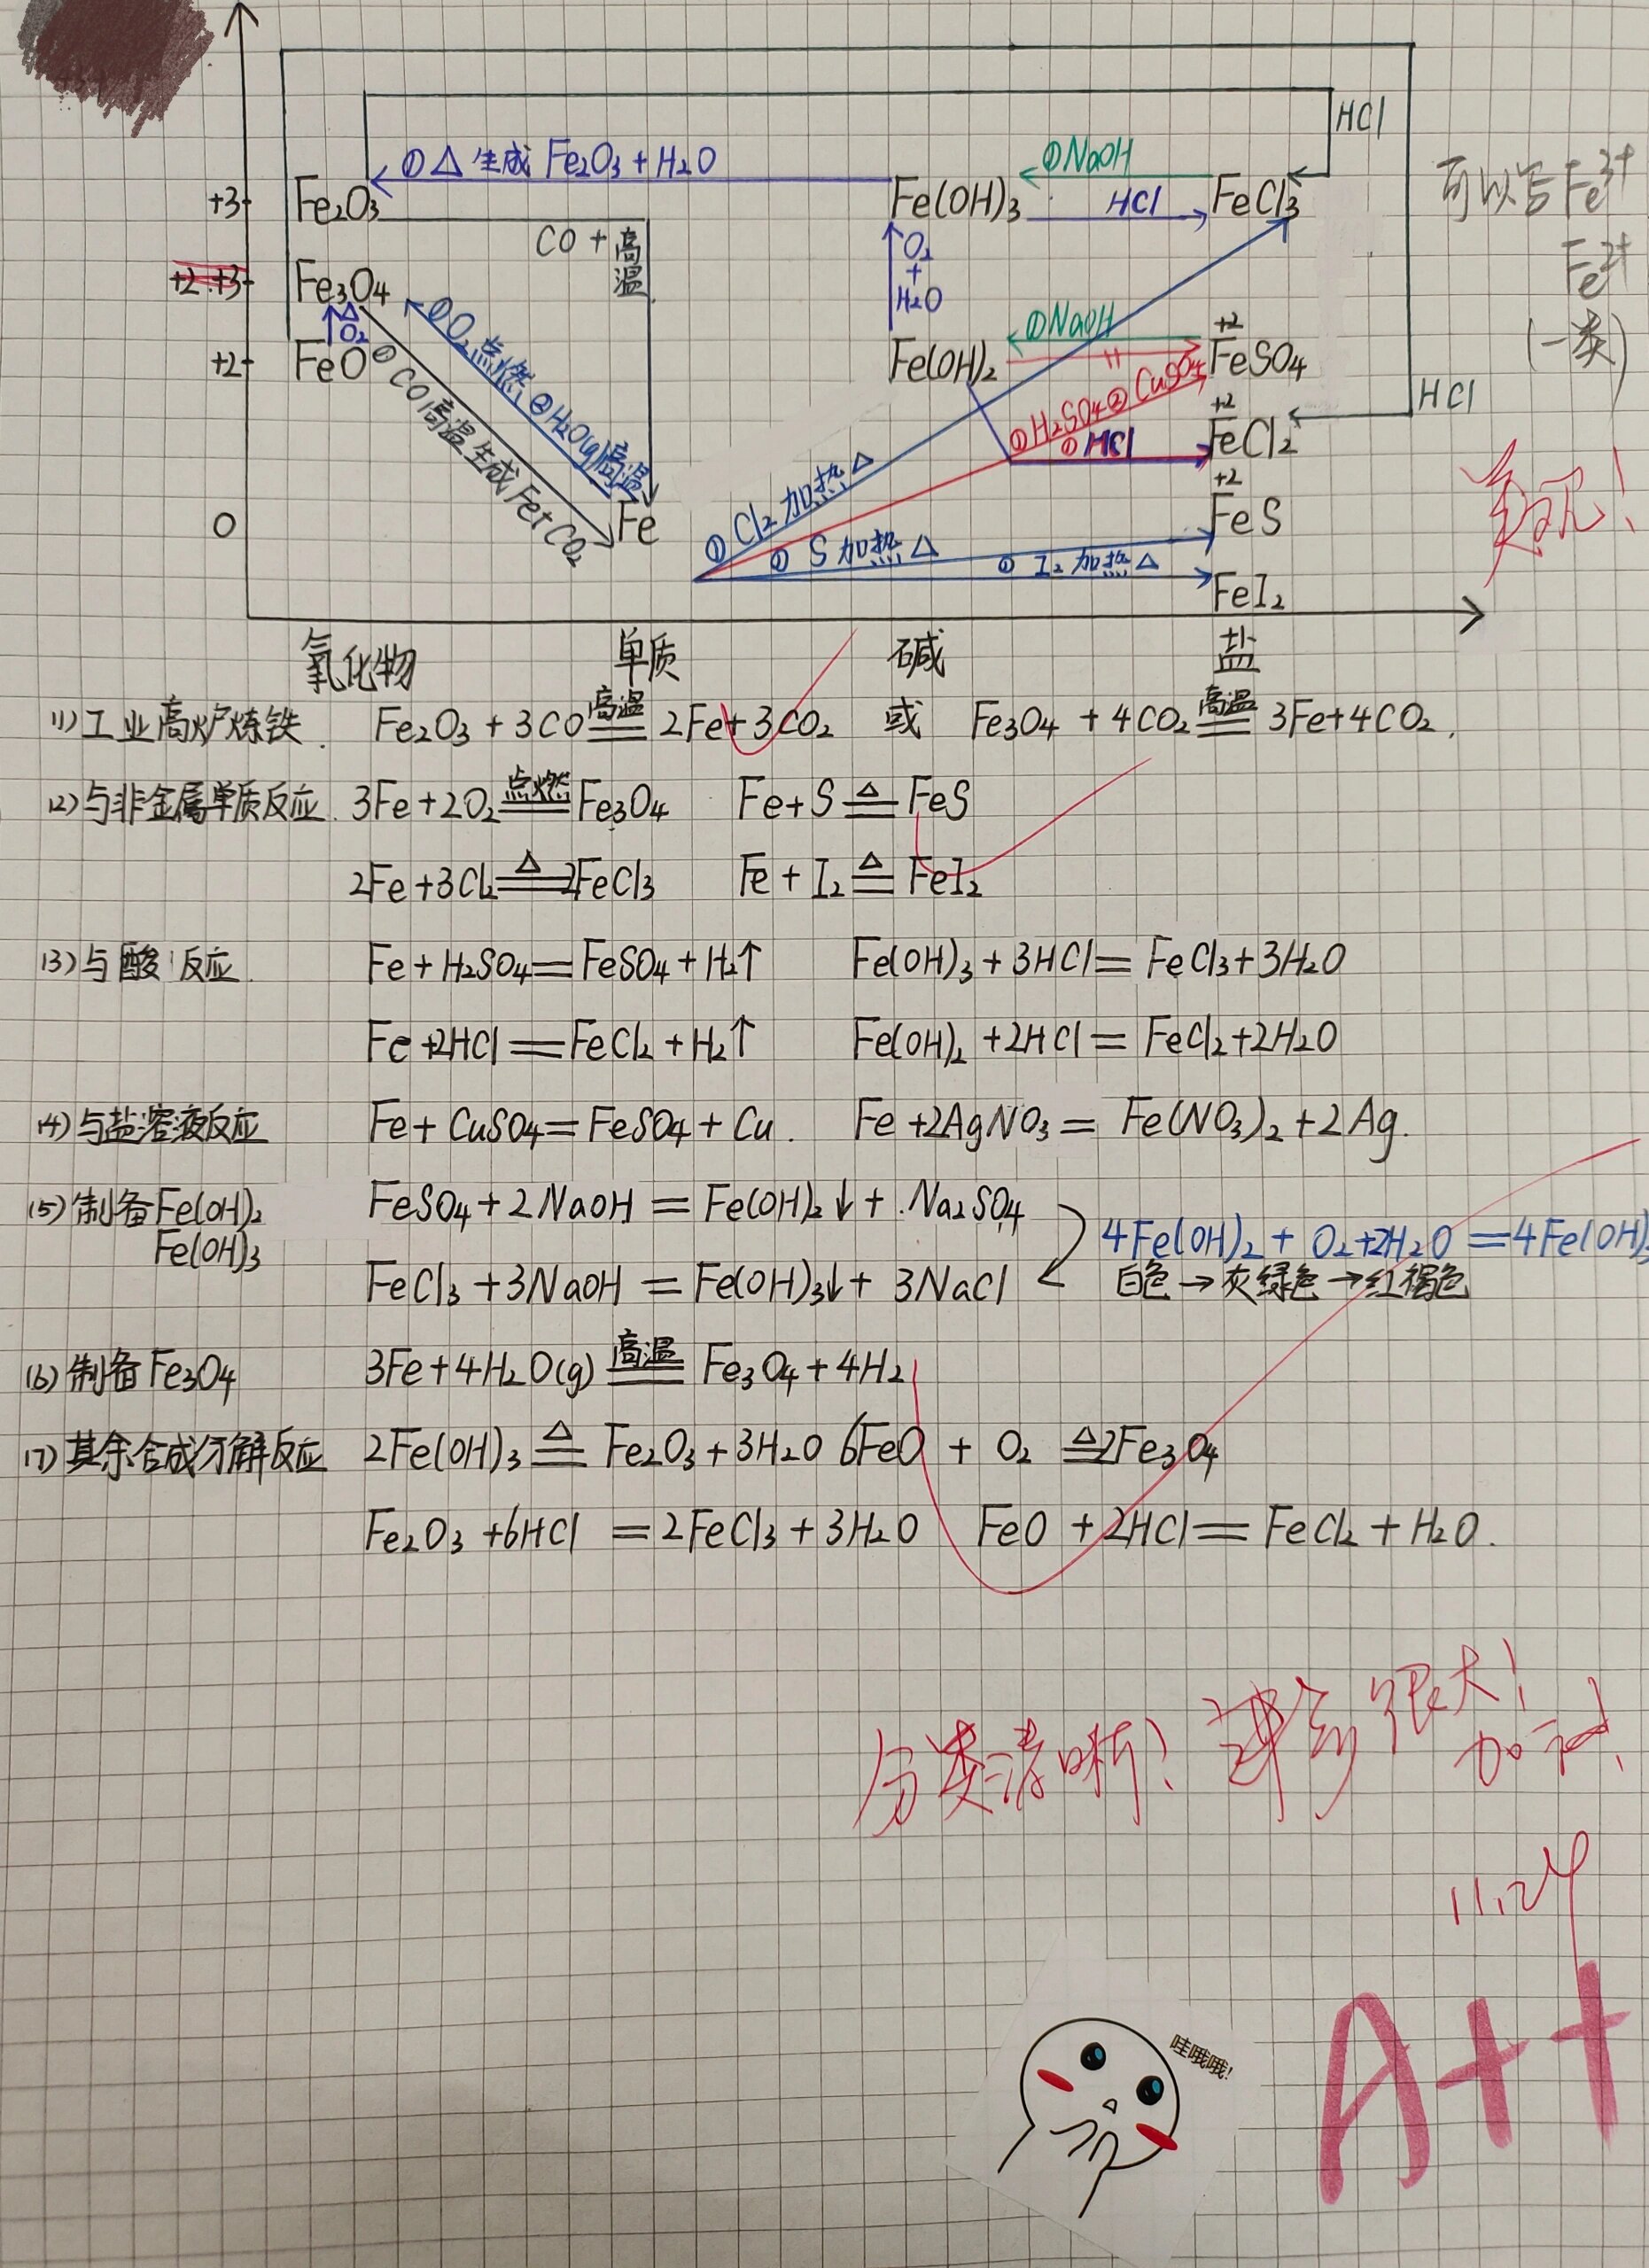 HCl
① △ 生成 Fe₂O₃ + H₂O
①NaOH
+3 Fe₂O₃ Fe(OH)₃ HCl FeCl₃
可以写Fe³⁺
Fe²⁺
(一类)
CO + 高温
O₂ + H₂O
+2 +3 Fe₃O₄
△ O₂
①O₂点燃 ②H₂O(g)高温
①NaOH
+2
+2 FeO Fe(OH)₂ FeSO₄
① CO高温生成Fe+CO₂
①H₂SO₄ ② CuSO₄
HCl
+2
① HCl FeCl₂
美观!
+2
0 Fe ① Cl₂ 加热 △ FeS
① S 加热 △
① I₂ 加热 △
FeI₂
氧化物 单质 碱 盐
(1)工业高炉炼铁. Fe₂O₃ + 3CO 高温 2Fe+3CO₂ 或 Fe₃O₄ + 4CO₂ 高温 3Fe+4CO₂.
(2)与非金属单质反应. 3Fe+2O₂ 点燃 Fe₃O₄ Fe+S △ FeS
2Fe+3Cl₂ △ 2FeCl₃ Fe + I₂ △ FeI₂
(3)与酸反应. Fe+H₂SO₄=FeSO₄+H₂↑ Fe(OH)₃+3HCl=FeCl₃+3H₂O
Fe+2HCl=FeCl₂+H₂↑ Fe(OH)₂+2HCl=FeCl₂+2H₂O
(4)与盐溶液反应 Fe+CuSO₄=FeSO₄+Cu. Fe+2AgNO₃=Fe(NO₃)₂+2Ag.
(5)制备Fe(OH)₂ FeSO₄+2NaOH=Fe(OH)₂↓+Na₂SO₄
Fe(OH)₃
4Fe(OH)₂+O₂+2H₂O=4Fe(OH)₃
FeCl₃+3NaOH=Fe(OH)₃↓+3NaCl
白色→灰绿色→红褐色
(6)制备Fe₃O₄ 3Fe+4H₂O(g) 高温 Fe₃O₄+4H₂
(7)其余合成分解反应 2Fe(OH)₃ △ Fe₂O₃+3H₂O 6FeO + O₂ △ 2Fe₃O₄
Fe₂O₃+6HCl=2FeCl₃+3H₂O FeO+2HCl=FeCl₂+H₂O.
分类清晰! 进步很大!
加油!
11.24
哇哦哦!
A++